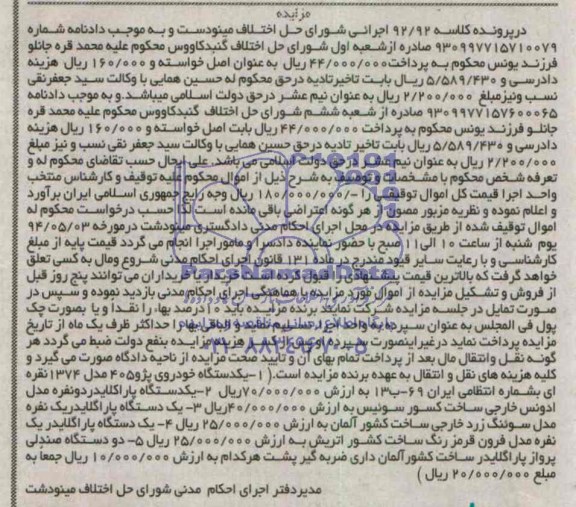 مزایده
درپرونده کلاسه ۹۲/۹۲ اجرائی شورای حل اختلاف مینودست و به موجب دادنامه شماره
۹۳۰۹۹۷۷۱۵۷۱۰۰۷۹ صادره ازشعبه اول شورای حل اختلاف گنبدکاووس محکوم علیه محمد قره جانلو
فرزند یونس محکوم به پرداخت ۴۴/۰۰۰/۰۰۰ ریال به عنوان اصل خواسته و ۱۶۰/۰۰۰ ریال هزینه
دادرسی و ۵/۵۸۹/۴۳۰ ریال بابت تاخیرتادیه درحق محکوم له حسین همایی با وکالت سید جعفرنقی
نسب ونیزمبلغ ۲/۲۰۰/۰۰۰ ریال به عنوان نیم عشر درحق دولت اسلامی میباشد.و به موجب دادنامه
۹۳۰۹۹۷۷۱۵۷۶۰۰۰۶۵ صادره از شعبه ششم شورای حل اختلاف گنبدکاووس محکوم علیه محمد قره
جانلو فرزند یونس محکوم به پرداخت ۴۴/۰۰۰/۰۰۰ ریال بابت اصل خواسته و ۱۶۰/۰۰۰ ریال هزینه
دادرسی و ۵/۵۸۹/۴۳۰ ریال بابت تاخیر تادیه درحق حسین همایی با وکالت سید جعفر نقی نسب و نیز مبلغ
۲/۲۰۰/۰۰۰ ریال به عنوان نیم عشر درحق دولت اسلامی می باشد. علی ایحال حسب تقاضای محکوم له و
تعرفه شخص محکوم با مشخصات و توصیف به شرح ذیل از اموال محکوم علیه توقیف و کارشناس منتخب
واحد اجرا قیمت کل اموال توقیفی را -/۱۸۰/۰۰۰/۰۰۰ ریال وجه رایج جمهوری اسلامی ایران برآورد
و اعلام نموده و نظریه مزبور مصون از هر گونه اعتراضی باقی مانده است لذا حسب درخواست محکوم له
اموال توقیف شده از طریق مزایده در محل اجرای احکام مدنی دادگستری مینودشت درمورخه ۹۴/۰۵/۰۳
یوم شنبه از ساعت ۱۰ الی ۱۱ صبح با حضور نماینده دادسرا و مامور اجرا انجام می گردد قیمت پایه از مبلغ
کارشناسی و با رعایت سایر قیود مندرج در ماده ۱۳۱ قانون اجرای احکام مدنی شروع ومال به کسی تعلق
خواهد گرفت که بالاترین قیمت پیشنهادی را قبول کرده باشد خریداران می توانند پنج روز قبل
از فروش و تشکیل مزایده از اموال مورد مزایده با هماهنگی اجرای احکام مدنی بازدید نموده و سپس در
صورت تمایل در جلسه مزایده شرکت نمایند برنده مزایده باید ۱۰درصد بها را نقدا و یا بصورت چک
پول فی المجلس به عنوان سپرده به واحد اجرا تسلیم نماید و الباقی بها را حداکثر ظرف یک ماه از تاریخ
مزایده پرداخت نماید درغیراینصورت سپرده وی پس از کسر هزینه مزایده بنفع دولت ضبط می گردد هر
گونه نقل و انتقال مال بعد از پرداخت تمام بهای آن و تایید صحت مزایده از ناحیه دادگاه صورت می گیرد و
کلیه هزینه های نقل و انتقال به عهده برنده مزایده است.( ۱-یکدستگاه خودروی پژو۴۰۵ مدل ۱۳۷۴نقره
ای بشماره انتظامی ایران ۶۹-ب۱۳ به ارزش ۷۰/۰۰۰/۰۰۰ریال ۲-یکدستگاه پاراگلایدردونفره مدل
ادونس خارجی ساخت کسور سوئیس به ارزش ۴۰/۰۰۰/۰۰۰ریال ۳- یک دستگاه پاراگلایدریک نفره
مدل سوئنگ زرد خارجی ساخت کشور آلمان به ارزش ۲۵/۰۰۰/۰۰۰ ریال ۴- یک دستگاه پاراگلایدر یک
نفره مدل فرون قرمز رنگ ساخت کشور اتریش به ارزش ۲۵/۰۰۰/۰۰۰ ریال ۵- دو دستگاه صندلی
پرواز پاراگلایدر ساخت کشورآلمان داری ضربه گیر پشت هرکدام به ارزش ۱۰/۰۰۰/۰۰۰ ریال جمعا به
مبلغ ۲۰/۰۰۰/۰۰۰ ریال )
مدیردفتر اجرای احکام مدنی شورای حل اختلاف مینودشت